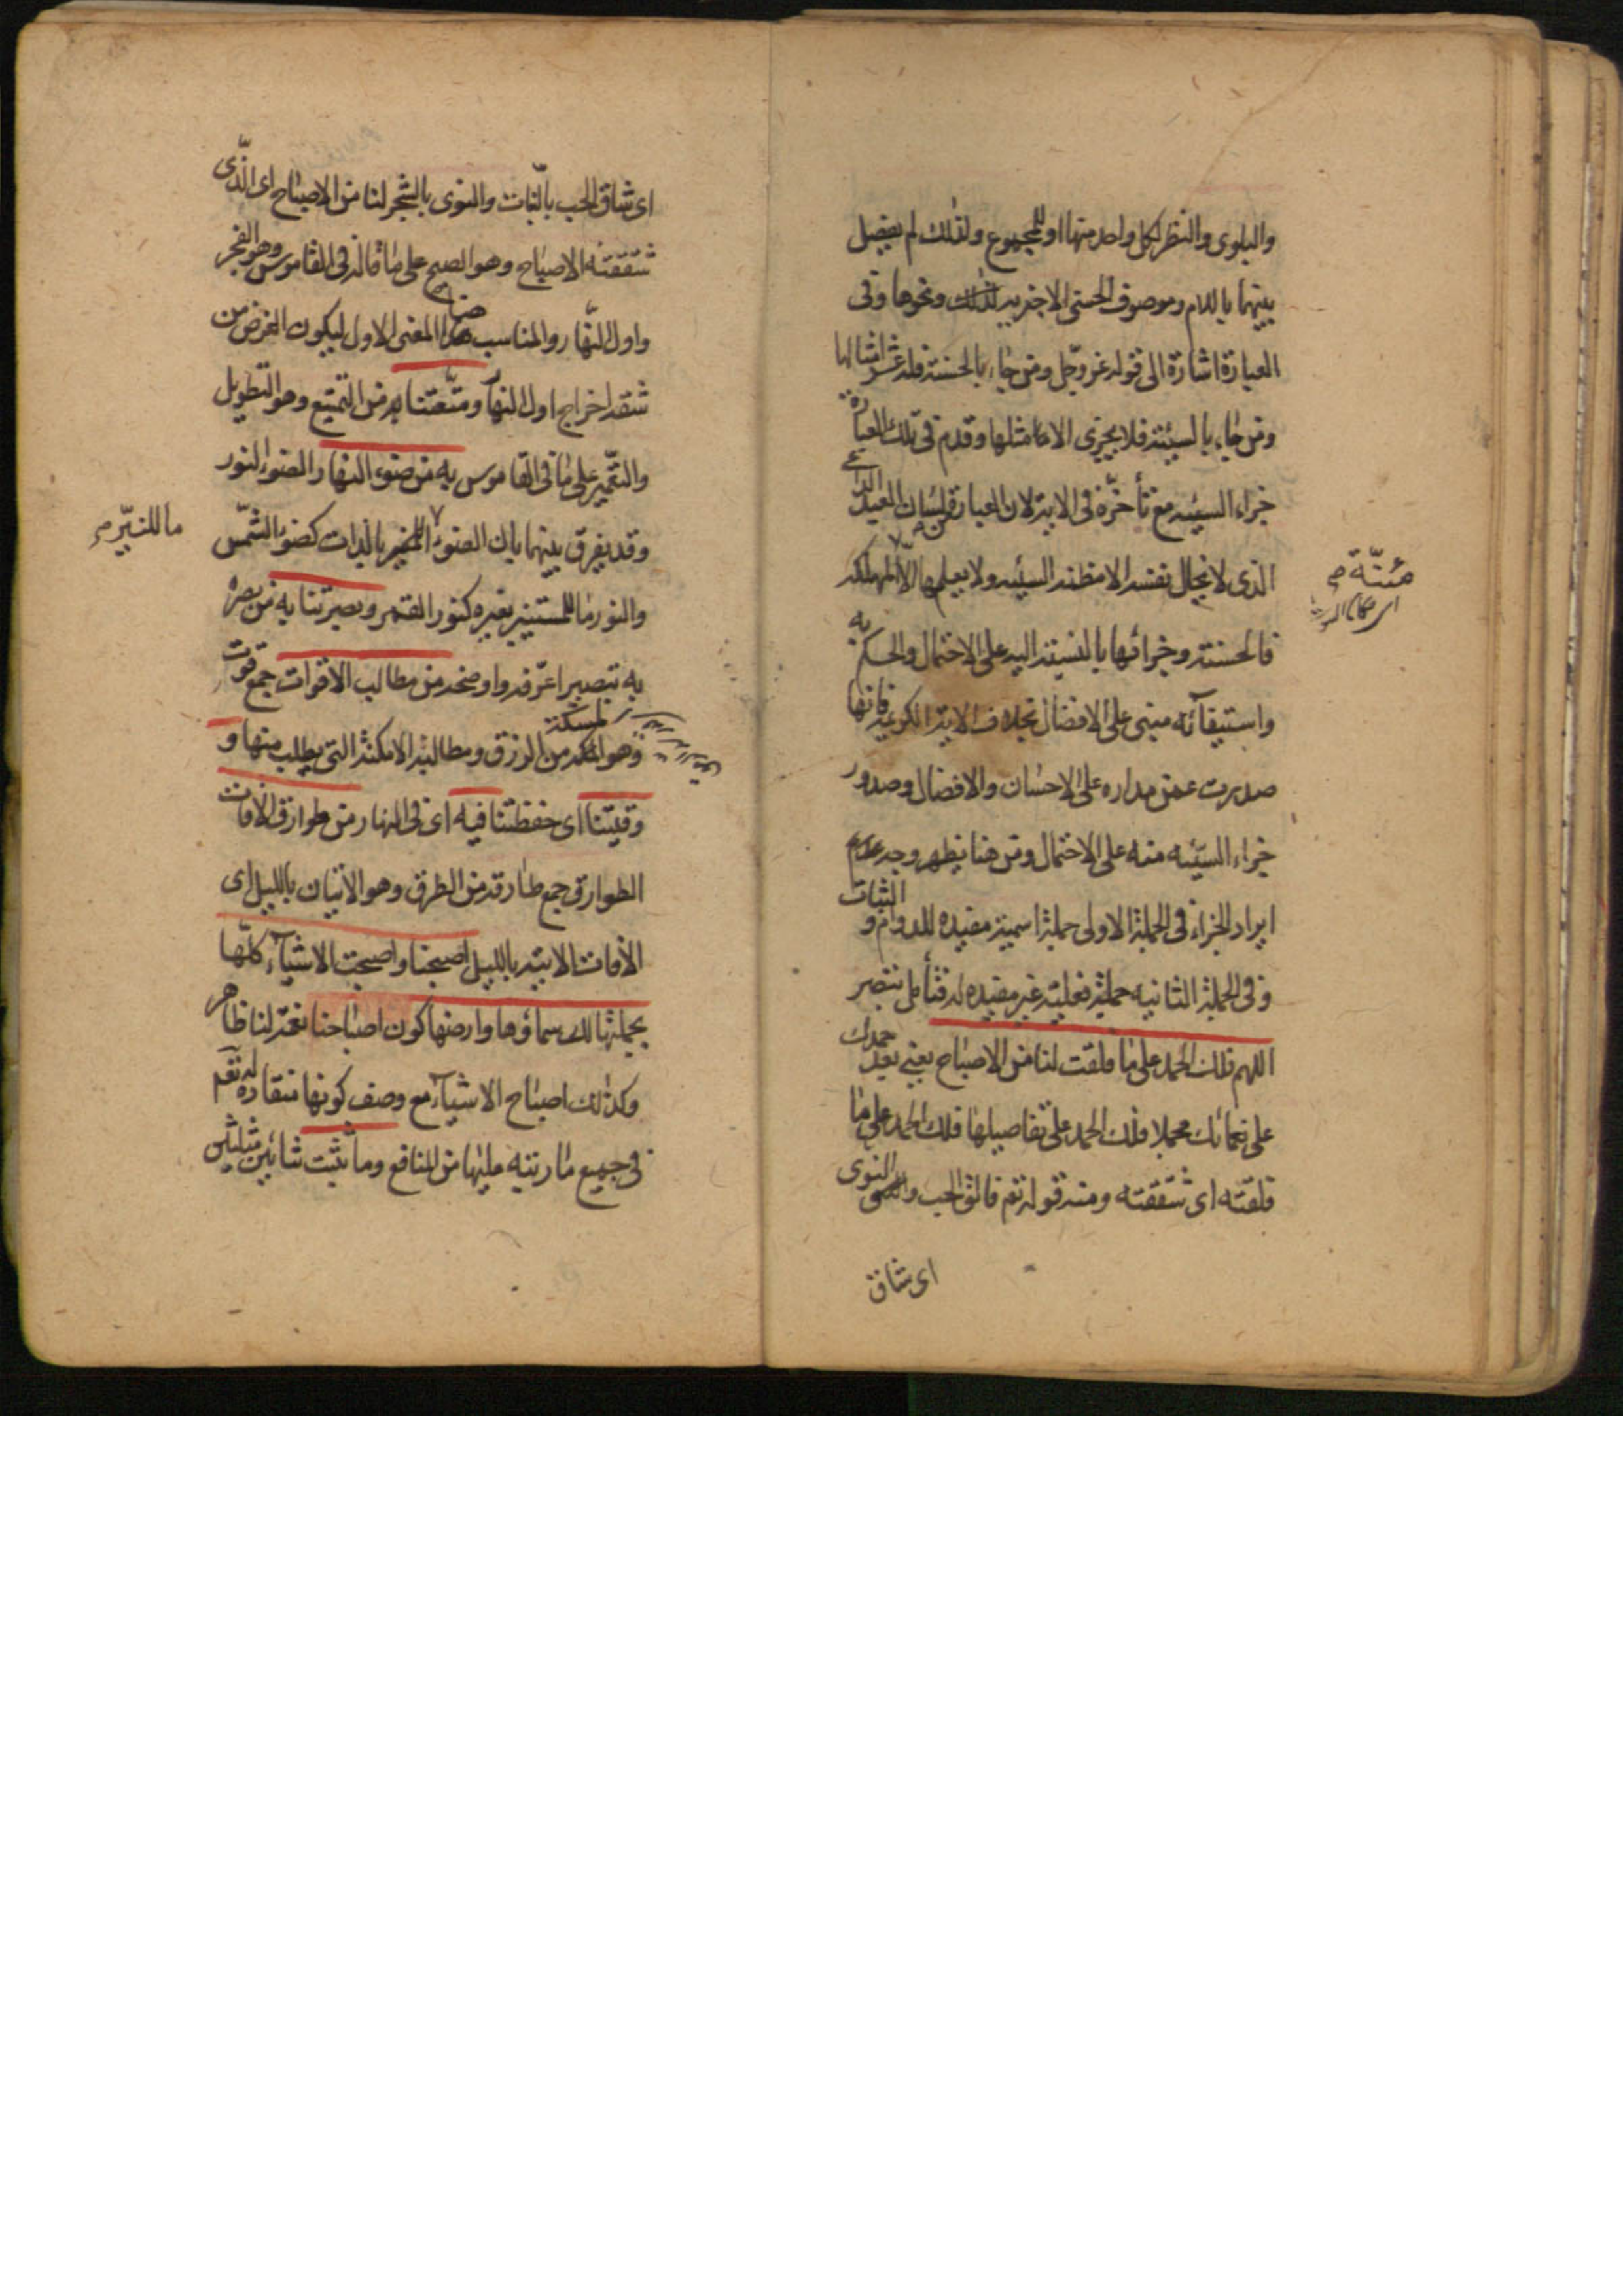 والبلوى والنظر لكل واحد منها او للمجموع ولذلك لم يفصل
بينهما باللام وموصوف الحسنى الاخروية لذلك ونحوها وفى
العبارة اشارة الى قوله عز وجل ومن جاء بالحسنة فله عشر امثالها
ومن جاء بالسيئة فلا يجزى الا مثلها وقدم فى تلك العبارة
جزاء السيئه مع تأخره فى الاية لان العبارة من لسان العبد الداعى
الذى لا يخال نفسه الا مظنة السيئه ولا يعلمها الا لمهلكة
مئنّة م
فالحسنة وجزائها بالنسبة اليه على الاحتمال والحكم به
واستيفائه مبنى على الافضال بخلاف الاية الكريمة فانها
صدرت عمن مداره على الاحسان والافضال وصدور
جزاء السيئه منه على الاحتمال ومن هنا يظهر وجه عدم
ايراد الجزاء فى الجملة الاولى جملة اسمية مفيدة للدوام و الثبات
وفى الجملة الثانيه جملة فعلية غير مفيده له فتأمل تبصر
اللهم فلك الحمد على ما فلقت لنا من الاصباح يعنى بعد حمدك
على نعمائك مجملا فلك الحمد على تفاصيلها فلك الحمد على ما
فلقته اى شققته ومنه قوله تعم فالق الحب والنوى
اى شاق
اى شاق الحب بالنبات والنوى بالشجر لنا من الاصباح اى الذى
شققته الاصباح وهو الصبح على ما قاله فى القاموس وهو الفجر
واول النهار والمناسب هنا المعنى الاول ليكون الغرض من
شقه اخراج اول النهار ومتعتنا به من التمتيع وهو التطويل
والتعمير على ما فى القاموس به من ضوء النهار الضوء النور
وقد يفرق بينهما بان الضوء المضير بالذات كضوء الشمس
ما للنيّر م
والنور ما للمستنير بغيره كنور القمر وبصرتنا به من بصره
به تبصيرا عرفه واوضحه من مطالب الاقوات جمع قوت
وهو المسكة من الرزق ومطالبه الامكنة التى يطلب منها و
وقيتنا اى حفظتنا فيه اى فى النهار من طوارق الافات
الطوارق جمع طارقة من الطرق وهو الاتيان بالليل اى
الافات الاتية بالليل اصبحنا واصبحت الاشياء كلها
بجملتها لك سماؤها وارضها كون اصباحنا نعمة لنا ظاهر
وكذلك اصباح الاشياء مع وصف كونها منقاده له تعم
فى جميع ما رتبه عليها من المنافع وما بثثت